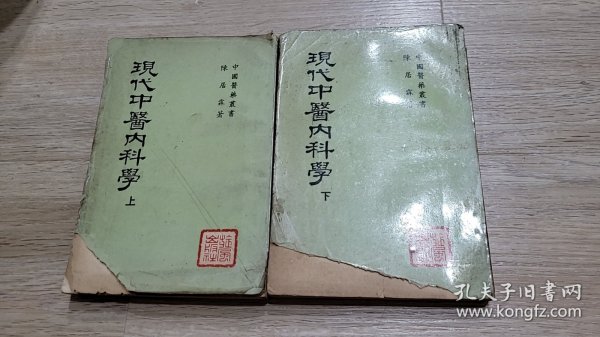 中國醫藥叢書
陳居霖著
現代中醫內科學 上
中國醫藥叢書
陳居霖
現代中醫內科學 下
孔夫子旧书网
www.kongfz.com